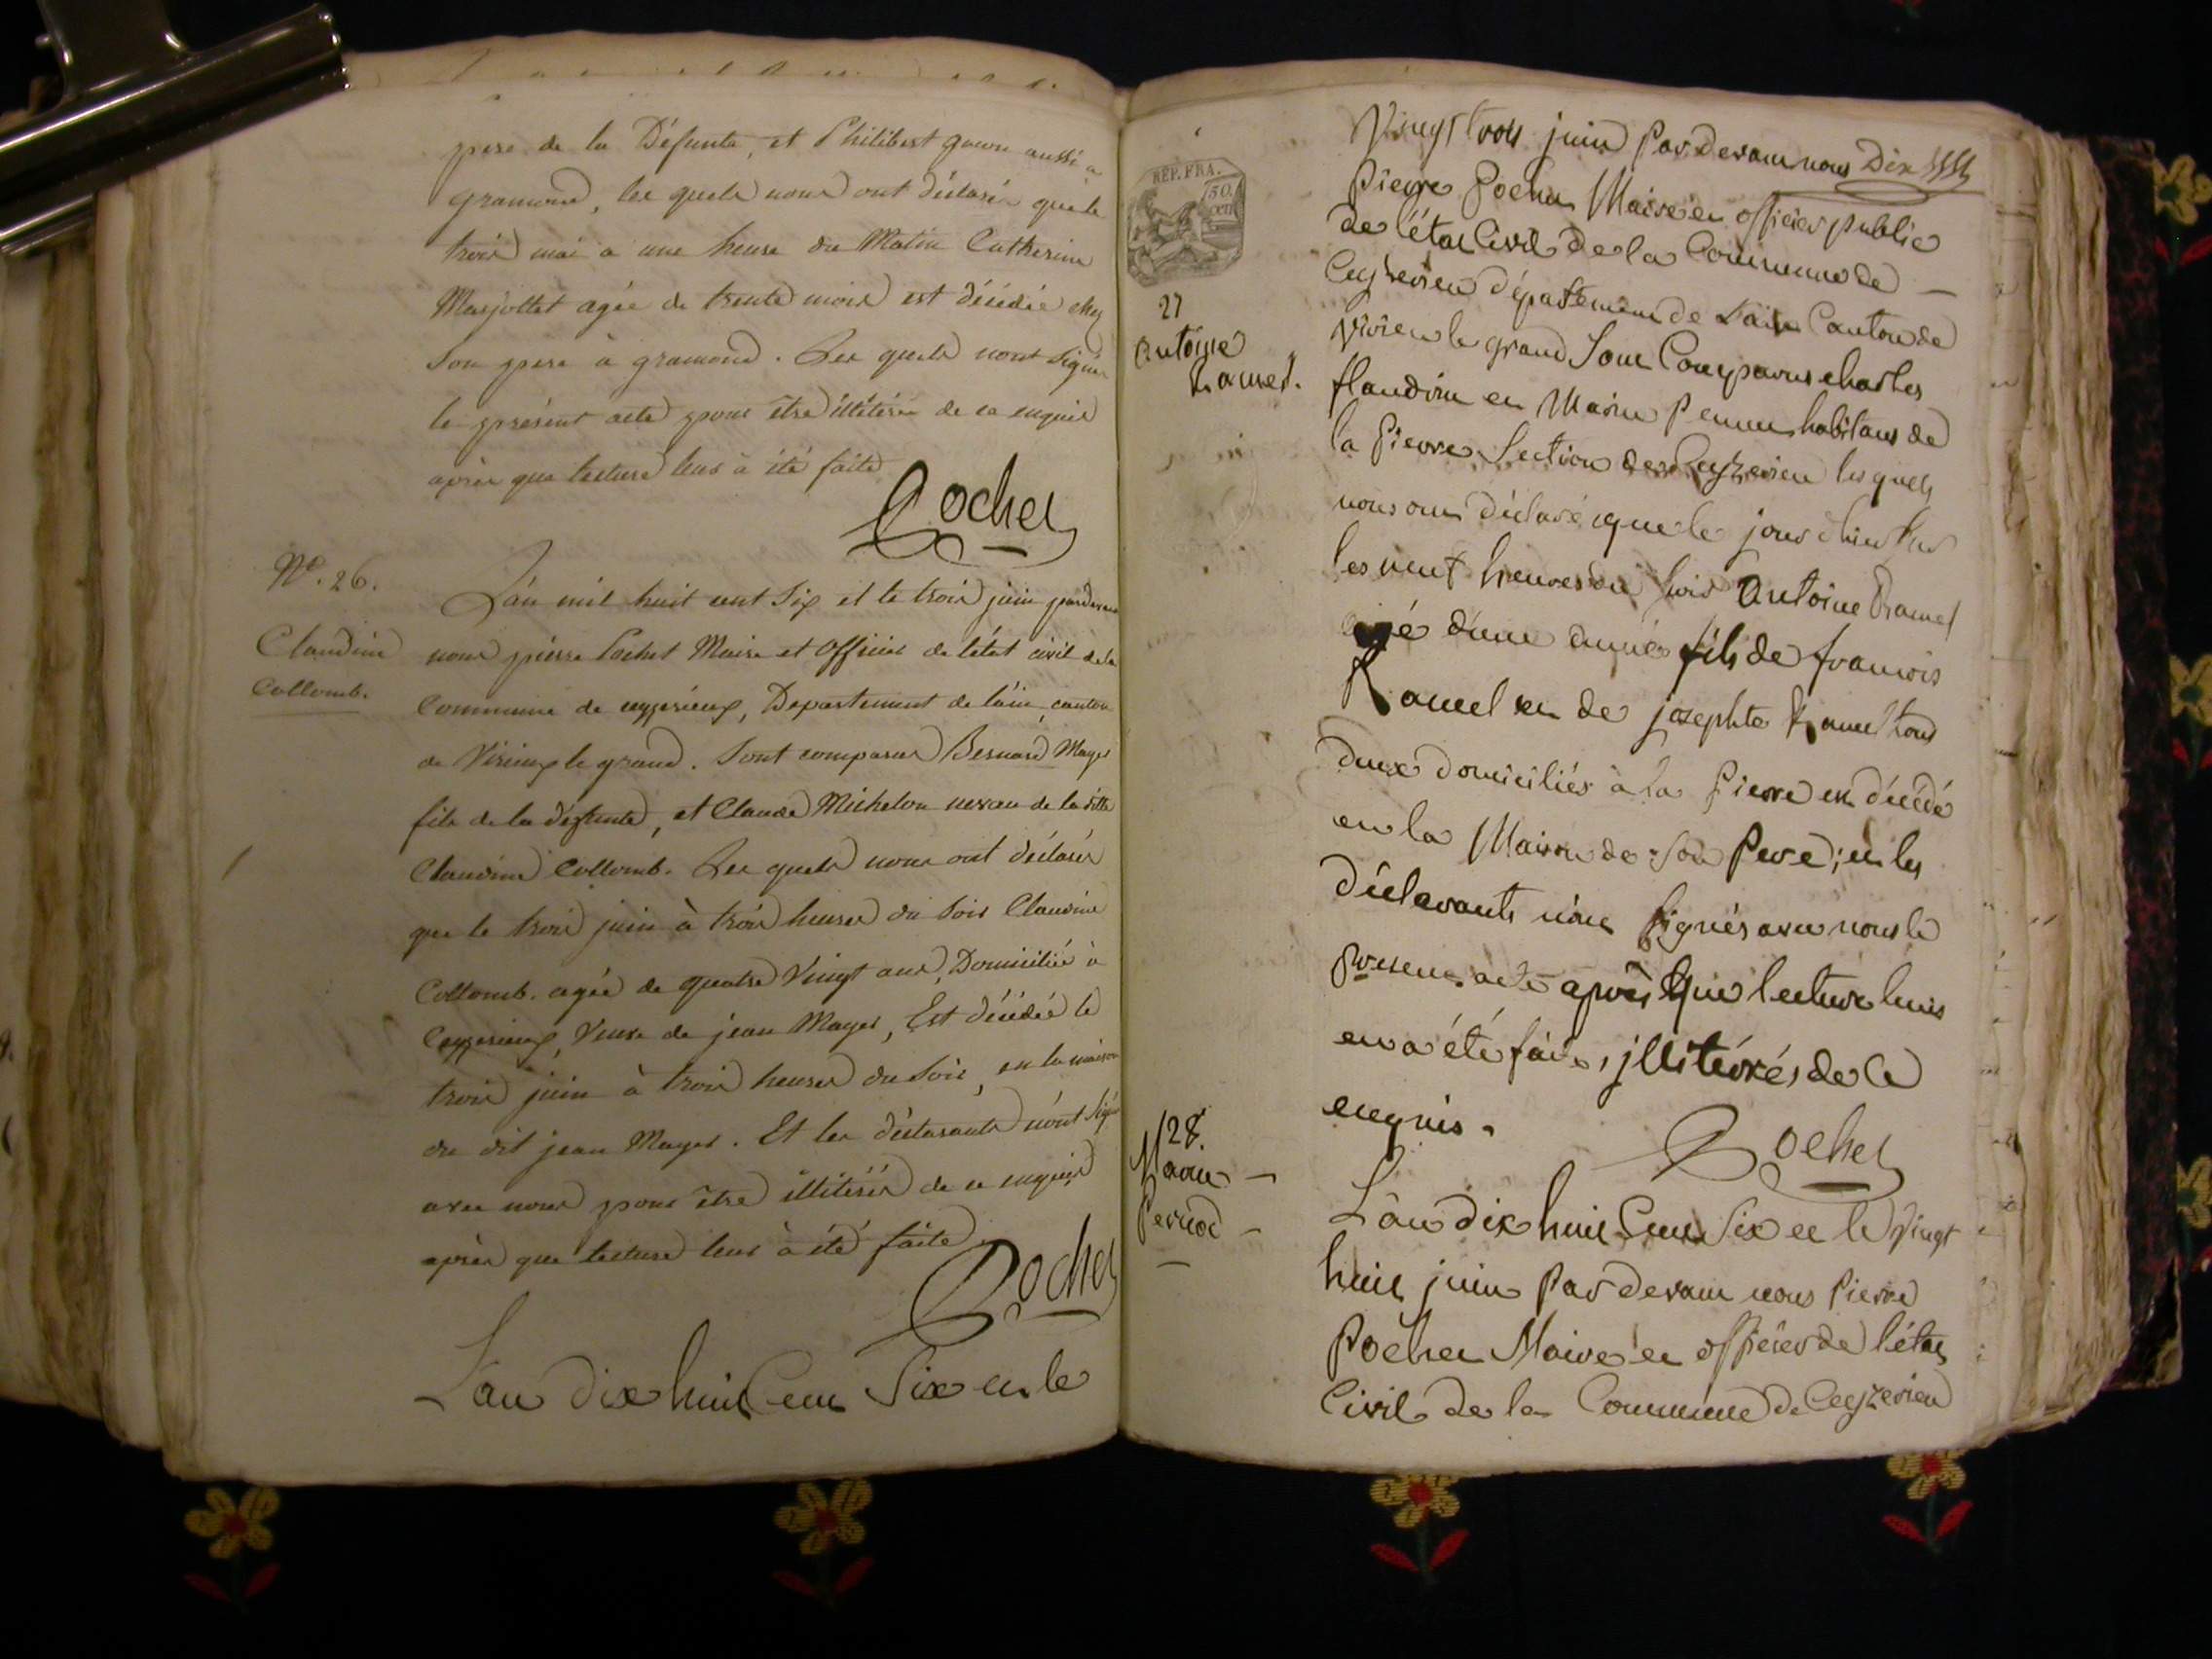 pere de la Défunte, et Philibert gouvu aussi a
gramond, les quels nous ont déclarés que le
trois mai a une heure du Matin Catherine
Marjollet agée de trente mois est décédée chez
Son pere à gramond. Les quels nont Signés
le présent acte pour être illitérés de ce enquis
après que lecture leur à été faite
Pochet
N°. 26.
Claudine
Collomb.
L'an mil huit cent Six et le trois juin pardevant
nous pierre Pochet Maire et Officier de l'état civil de la
Commune de ceyzerieux, Departement de l'ain, canton
de Virieux le grand. Sont comparus Bernard Mayet
fils de la défunte, et Claude Michelon neveu de la ditte
Claudine Collomb. Les quels nous ont déclarés
que le trois juin à trois heures du Soir Claudine
Collomb. agée de quatre Vingt ans, Domiciliée à
Ceyzerieux, Veuve de jean Mayet, Est décédée le
trois juin à trois heures du Soir, en la maison
du dit jean Mayet. Et les déclarants n'ont Signé
avec nous pour être illitérés de ce enquis
après que lecture leur à été faite
Pochet
L'an dix huit Cent Six et le
REP. FRA.
50
CEN
27
Antoine
Ramel.
Vingt trois juin Par devant nous Dix
Pierre Pochet Maire et officier public
de l'état Civil de la Commune de —
Ceyzerieu département de L'ain Canton de
Virieu le grand Sont Comparus charles
flandrin et Marin Pernin habitans de
la Pierre Section de Ceyzerieu lesquels
nous ont déclaré que le jour d'hier Sur
les neuf heures du Soir Antoine Ramel
agé d'une année fils de francois
Ramel et de josephte Ramel tous
deux domiciliés à la Pierre est décédé
en la Maison de Son Pere; et les
déclarants n'ont Signés avec nous le
present acte après que lecture leurs
en a été faite, jllitérés de ce
enquis.
Pochet
28.
Marie —
Pernod —
L'an dix huit Cent Six et le Vingt
huit juin Par devant nous Pierre
Pochet Maire et officier de l'état
Civil de la Commune de Ceyzerieu